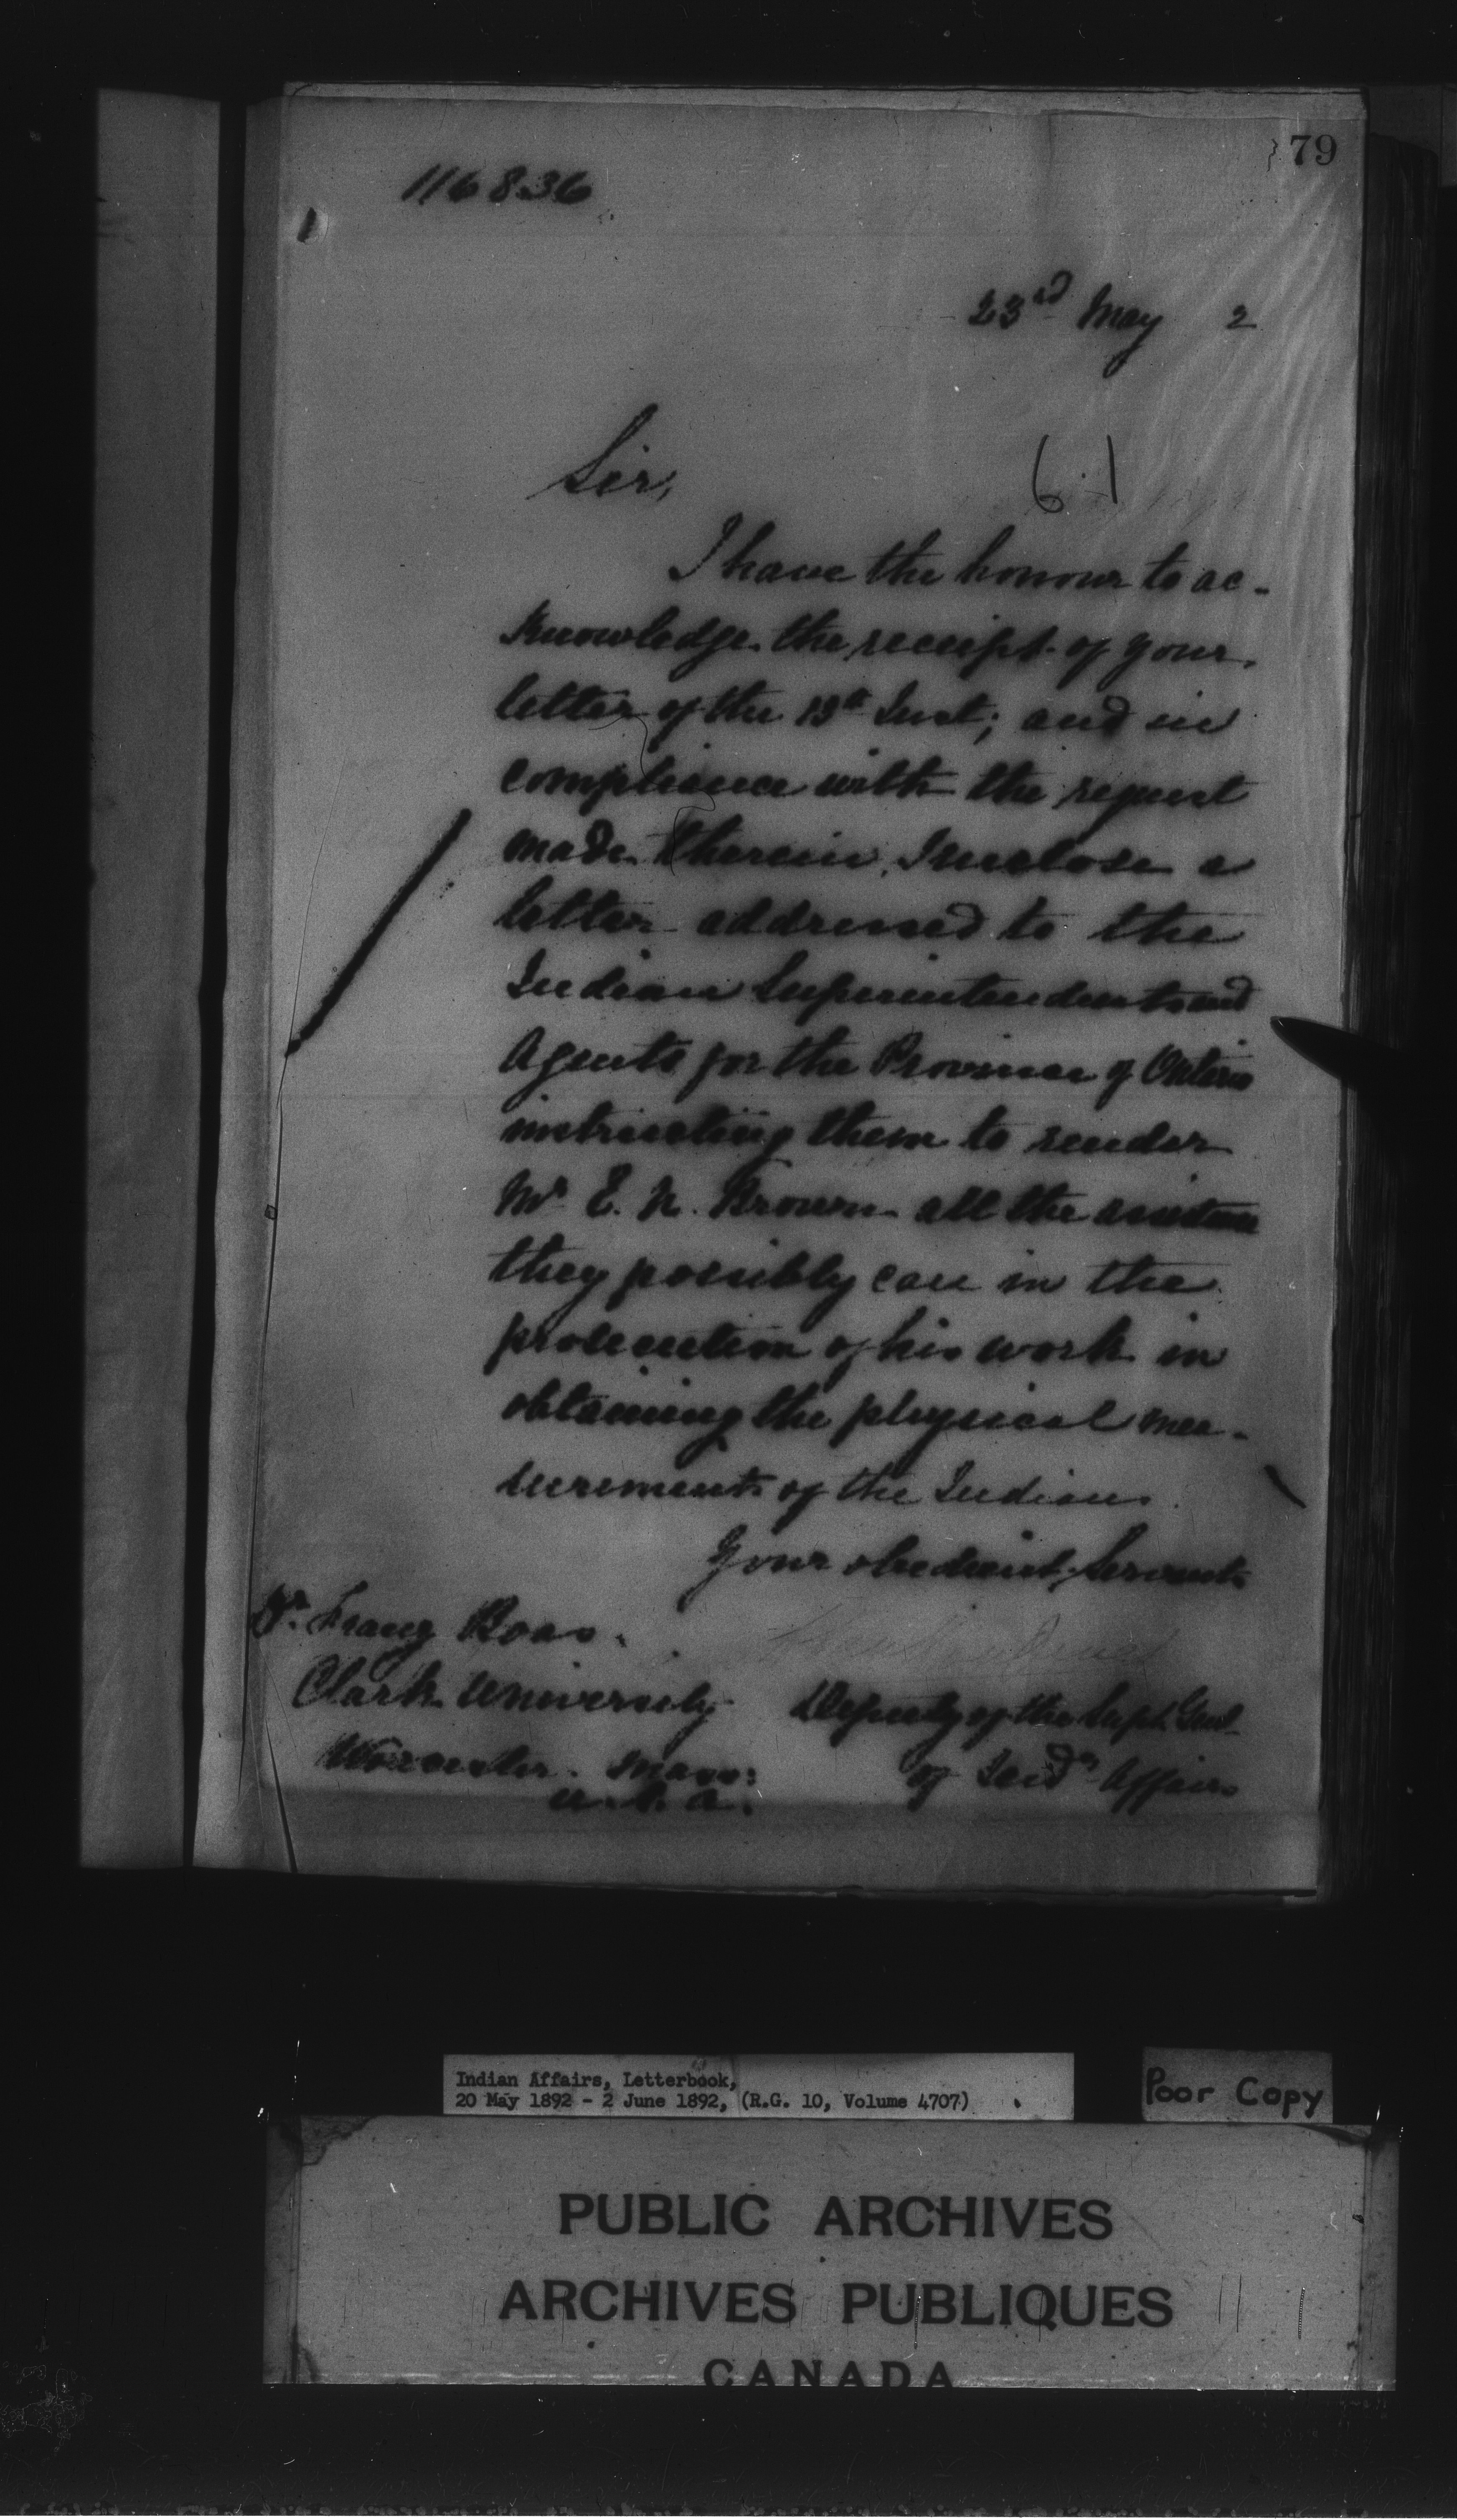 79
116836
23rd May 2
Sir,
6.1
I have the honour to ac-
knowledge the receipt of your
letter of the 19th Inst; and in
compliance with the request
made therein, I enclose a
letter addressed to the
Indian Superintendents and
Agents for the Province of Ontario
instructing them to render
Mr E. N. Brown all the assistance
they possibly can in the
prosecution of his work in
obtaining the physical mea-
surements of the Indians.
Your obedient Servant
Dr. Franz Boas.
Clark University
Worcester. Mass:
U.S.A.
Deputy of the Supt. Genl.
of Indn Affairs
Indian Affairs, Letterbook,
20 May 1892 - 2 June 1892, (R.G. 10, Volume 4707)
Poor Copy
PUBLIC ARCHIVES
ARCHIVES PUBLIQUES
CANADA